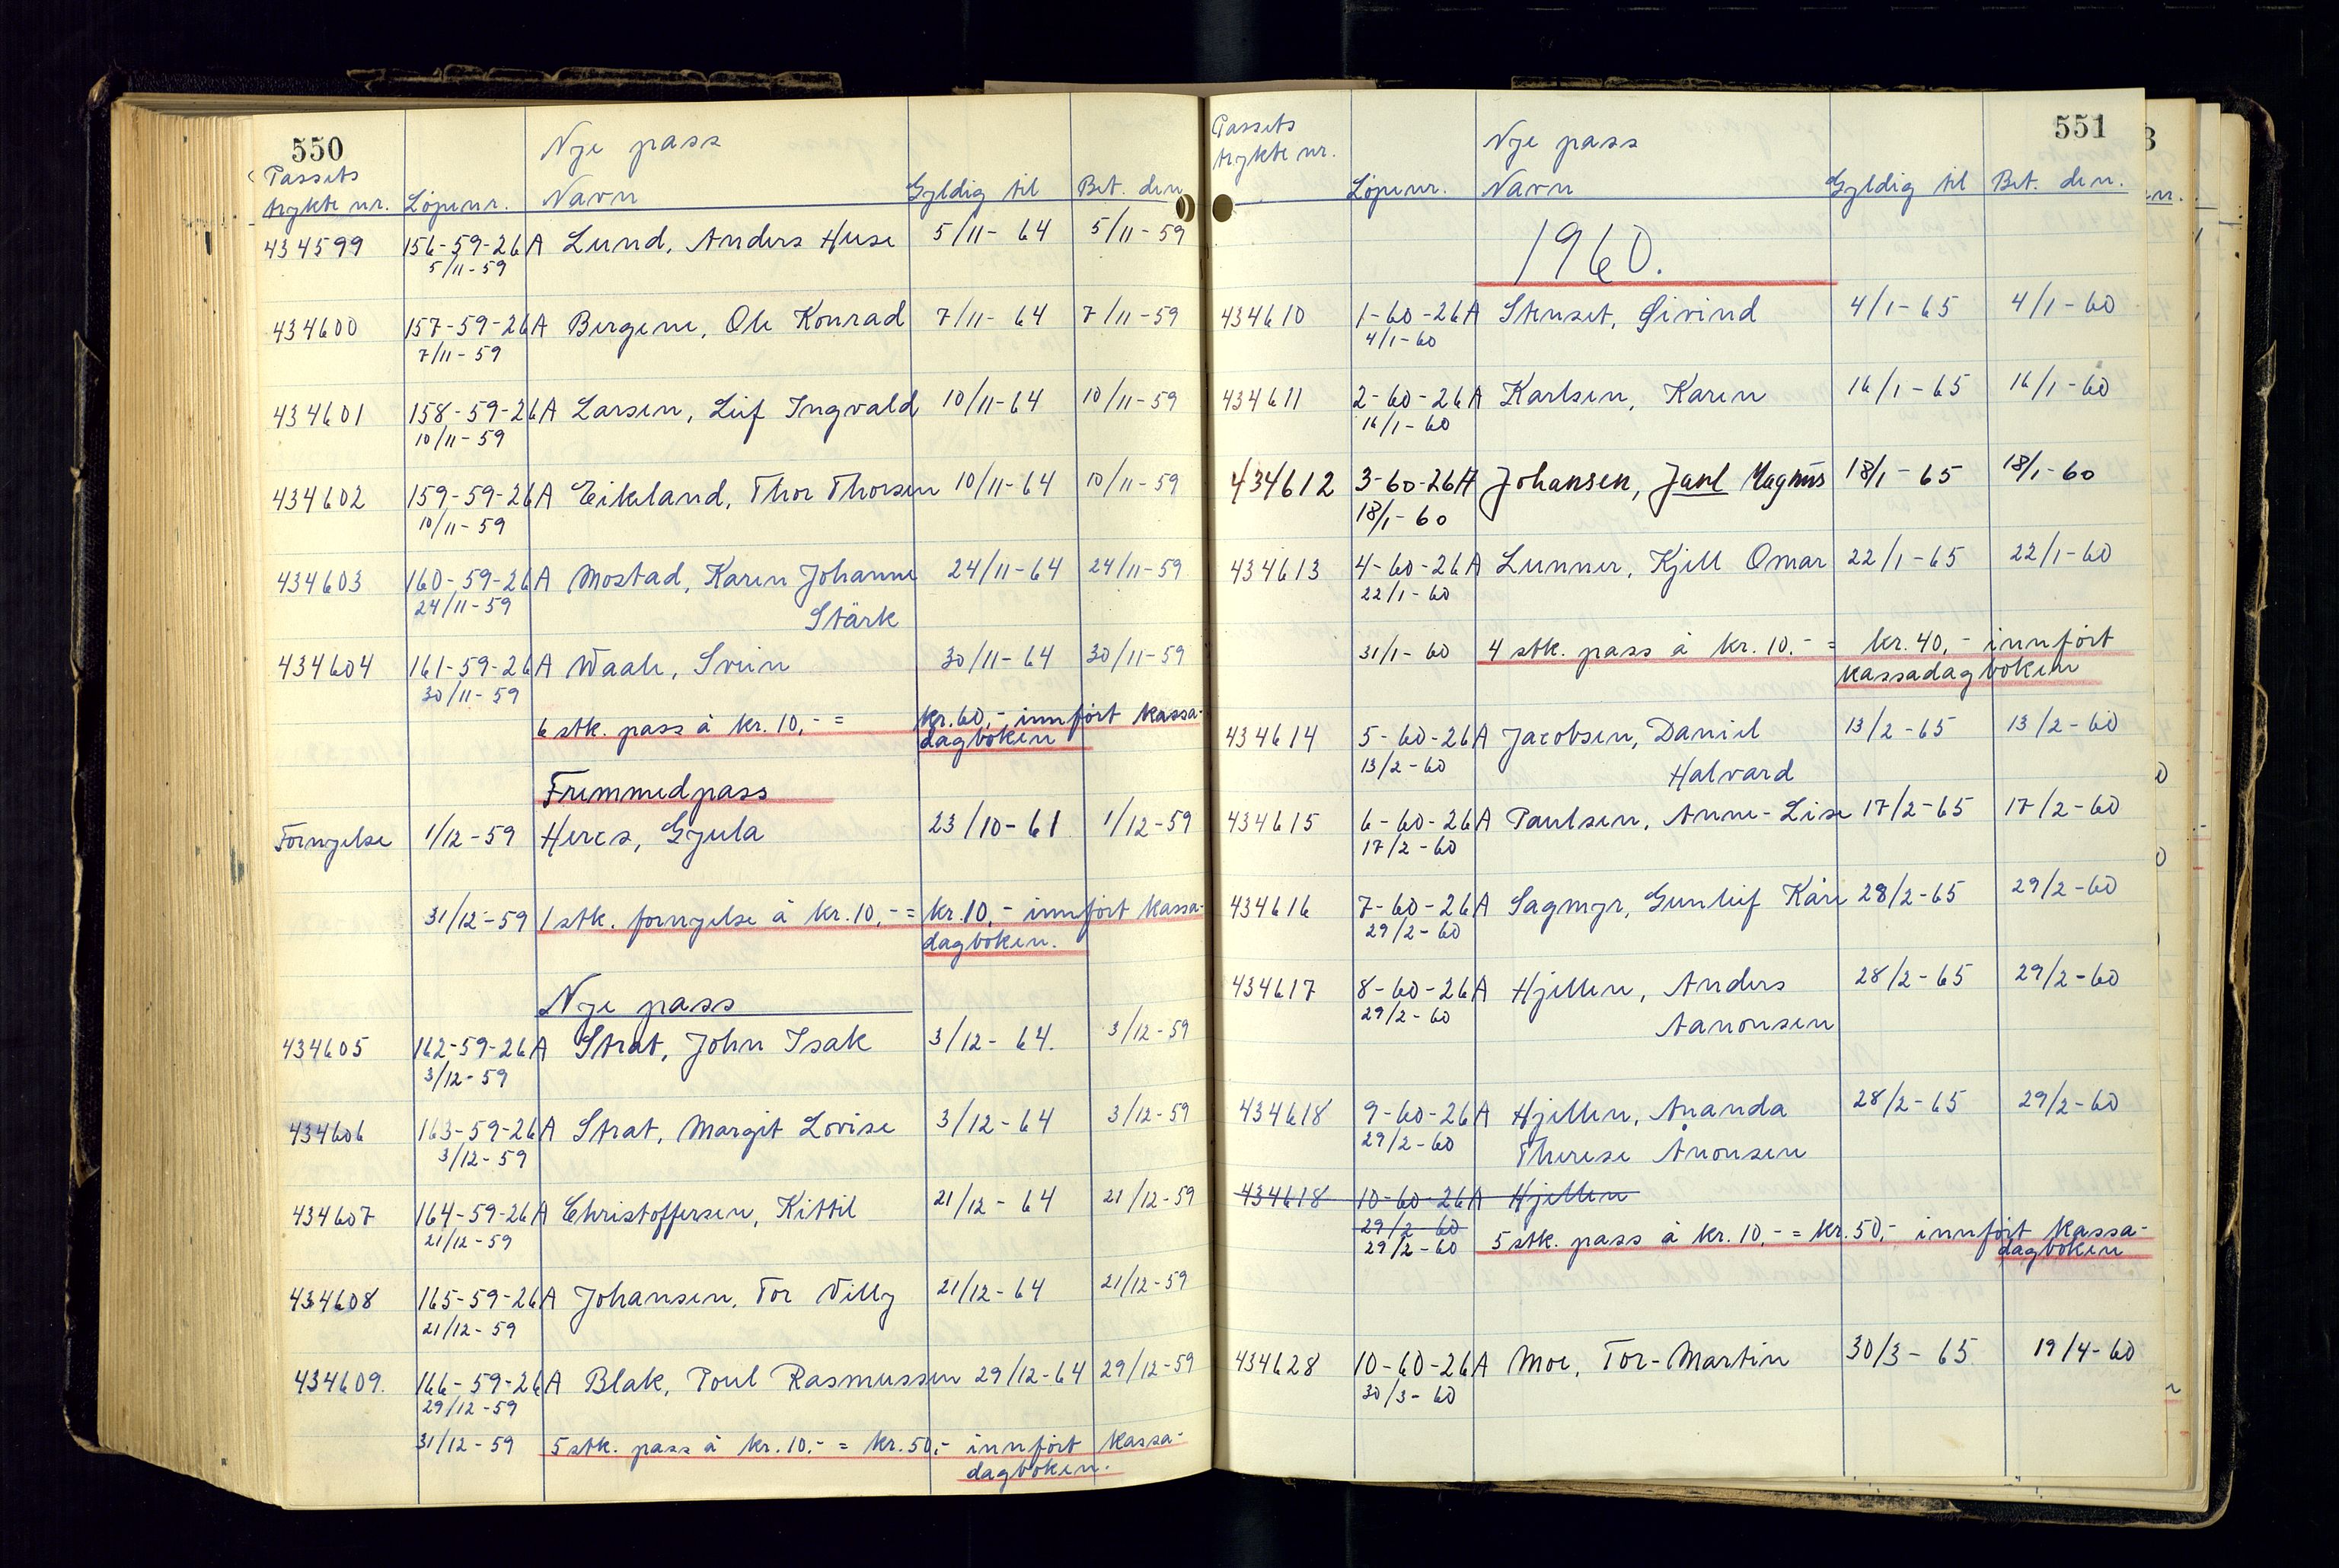 550
Nye pass
Passets
trykte nr. Löpenr. Navn Gyldig til Bet. den
434599 156-59-26A Lund, Anders Huse 5/11-64 5/11-59
5/11-59
434600 157-59-26A Bergene, Ole Konrad 7/11-64 7/11-59
7/11-59
434601 158-59-26A Larsen, Leif Ingvald 10/11-64 10/11-59
10/11-59
434602 159-59-26A Eikeland, Thor Thorsen 10/11-64 10/11-59
10/11-59
434603 160-59-26A Mostad, Karen Johanne 24/11-64 24/11-59
24/11-59 Stärk
434604 161-59-26A Waale, Svein 30/11-64 30/11-59
30/11-59
6 stk. pass à kr. 10,- = kr. 60,- innført kassa-
dagboken
Fremmedpass
Fornyelse 1/12-59 Hercs, Gyula 23/10-61 1/12-59
31/12-59 1 stk. fornyelse à kr. 10,- = kr. 10,- innført kassa-
dagboken.
Nye pass
434605 162-59-26A Strat, John Isak 3/12-64. 3/12-59
3/12-59
434606 163-59-26A Strat, Margit Lovise 3/12-64 3/12-59
3/12-59
434607 164-59-26A Christoffersen, Kittil 21/12-64 21/12-59
21/12-59
434608 165-59-26A Johansen, Tor Villy 21/12-64 21/12-59
21/12-59
434609. 166-59-26A Blak, Poul Rasmussen 29/12-64 29/12-59
29/12-59
31/12-59 5 stk. pass à kr. 10,- = kr. 50,- innført kassa-
dagboken.
551
Passets
trykte nr. Nye pass
Löpenr. Navn Gyldig til Bet. den.
1960.
434610 1-60-26A Stenset, Øivind 4/1-65 4/1-60
4/1-60
434611 2-60-26A Karlsen, Karen 16/1-65 16/1-60
16/1-60
434612 3-60-26A Johansen, Jarl Magnus 18/1-65 18/1-60
18/1-60
434613 4-60-26A Lunner, Kjell Omar 22/1-65 22/1-60
22/1-60
31/1-60 4 stk. pass à kr. 10.- = kr. 40,- innført
kassadagboken
434614 5-60-26A Jacobsen, Daniel 13/2-65 13/2-60
13/2-60 Halvard
434615 6-60-26A Paulsen, Anne-Lise 17/2-65 17/2-60
17/2-60
434616 7-60-26A Sagmyr, Gunleif Kåre 28/2-65 29/2-60
29/2-60
434617 8-60-26A Hjellen, Anders 28/2-65 29/2-60
29/2-60 Aanonsen
434618 9-60-26A Hjellen, Ananda 28/2-65 29/2-60
29/2-60 Therese Ånonsen
434618 10-60-26A Hjellen
29/2-60
29/2-60 5 stk. pass à kr. 10,- = kr. 50,- innført kassa-
dagboken
434628 10-60-26A Moe, Tor-Martin 30/3-65 19/4-60
30/3-60